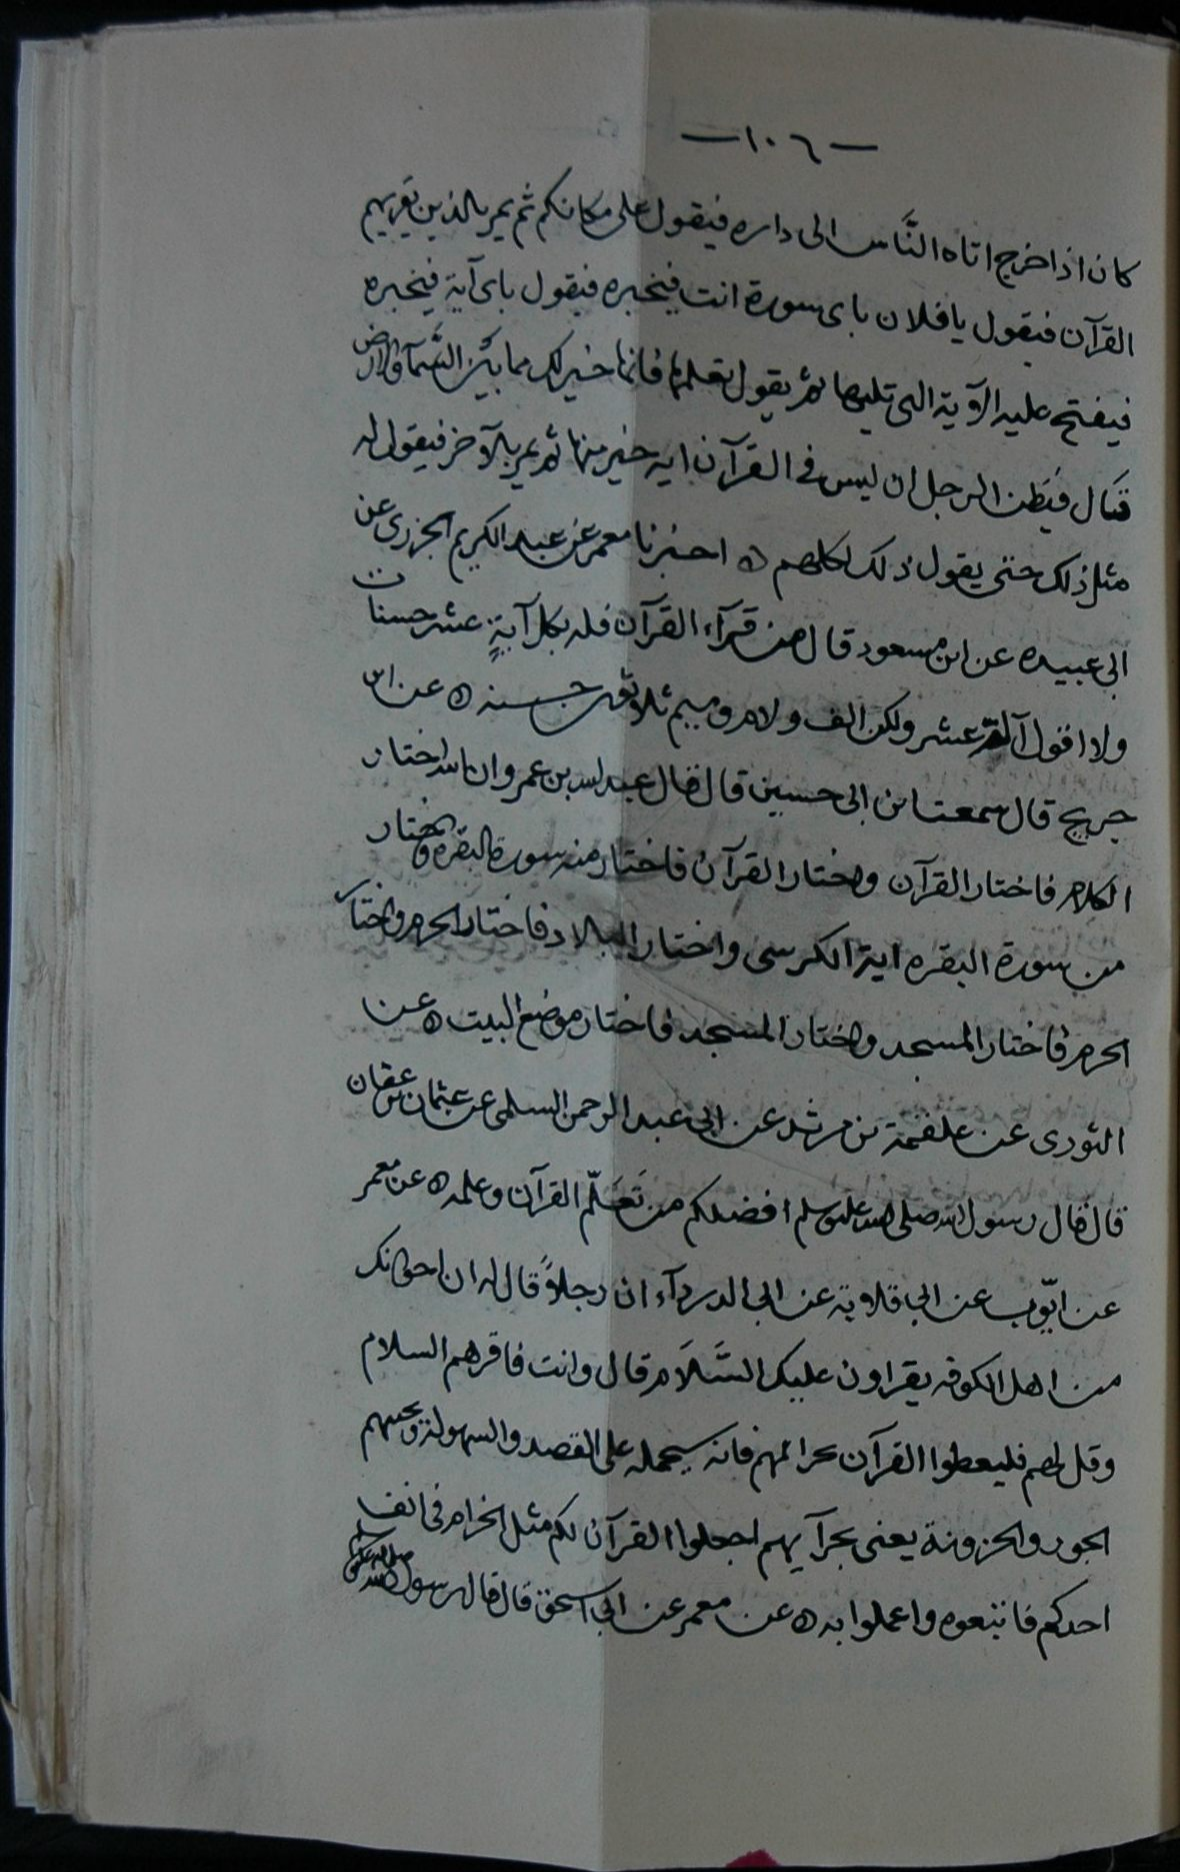 — ١٠٦ —
كان اذا خرج اتاه النَّاس الى داره فيقول على مكانكم ثم يمر بالذين يقريهم
القرآن فيقول يا فلان باى سورة انت فيخبره فيقول باى آية فيخبره
فيفتح عليه الآية التى تليها ثم يقول تعلمها فانها خير لك مما بَيْن السَّمآء والارض
قال فيظن الرجل ان ليس فى القرآن اية خير منها ثم يمر بالآخر فيقول له
مثل ذلك حتى يقول ذلك لكلهم ه اخبرنا معمر عن عبد الكريم الجزرى عن
ابى عبيده عن ابن مسعود قال من قرآء القرآن فله بكل آيةٍ عشر حسنات
ولا اقول آلمّ عشر ولكن الف ولام وميم ثلاثون حسنه ه عن ابن
جريج قال سمعت ابن ابى حسين قال قال عبد الله بن عمرو ان الله اختار
الكلام فاختار القرآن واختار القرآن فاختار منه سورة البقره واختار
من سورة البقره اية الكرسى واختار البلاد فاختار الحرم واختار
الحرم فاختار المسجد واختار المسجد فاختار موضع البيت ه عن
الثورى عن علقمة بن مرثد عن ابى عبد الرحمن السلمى عن عثمان بن عفان
قال قال رسول الله صلى الله عليه وسلم افضلكم من تَعَلّم القرآن وعلمه ه عن معمر
عن ايّوب عن ابى قلابة عن ابى الدردآء ان رجلاً قال له ان اخوانك
من اهل الكوفه يقراون عليك السَّلَام قال وانت فاقرهم السلام
وقل لهم فليعطوا القرآن بحرالمهم فانه سيحمله على القصد والسهولة ويجنبهم
الجور والحزونة يعنى بجرآيهم اجعلوا القرآن لكم مثل الخرام فى انف
احدكم فاتبعوه واعملوا به ه عن معمر عن ابى اسحق قال قال رسول الله صلى الله عليه وسلم